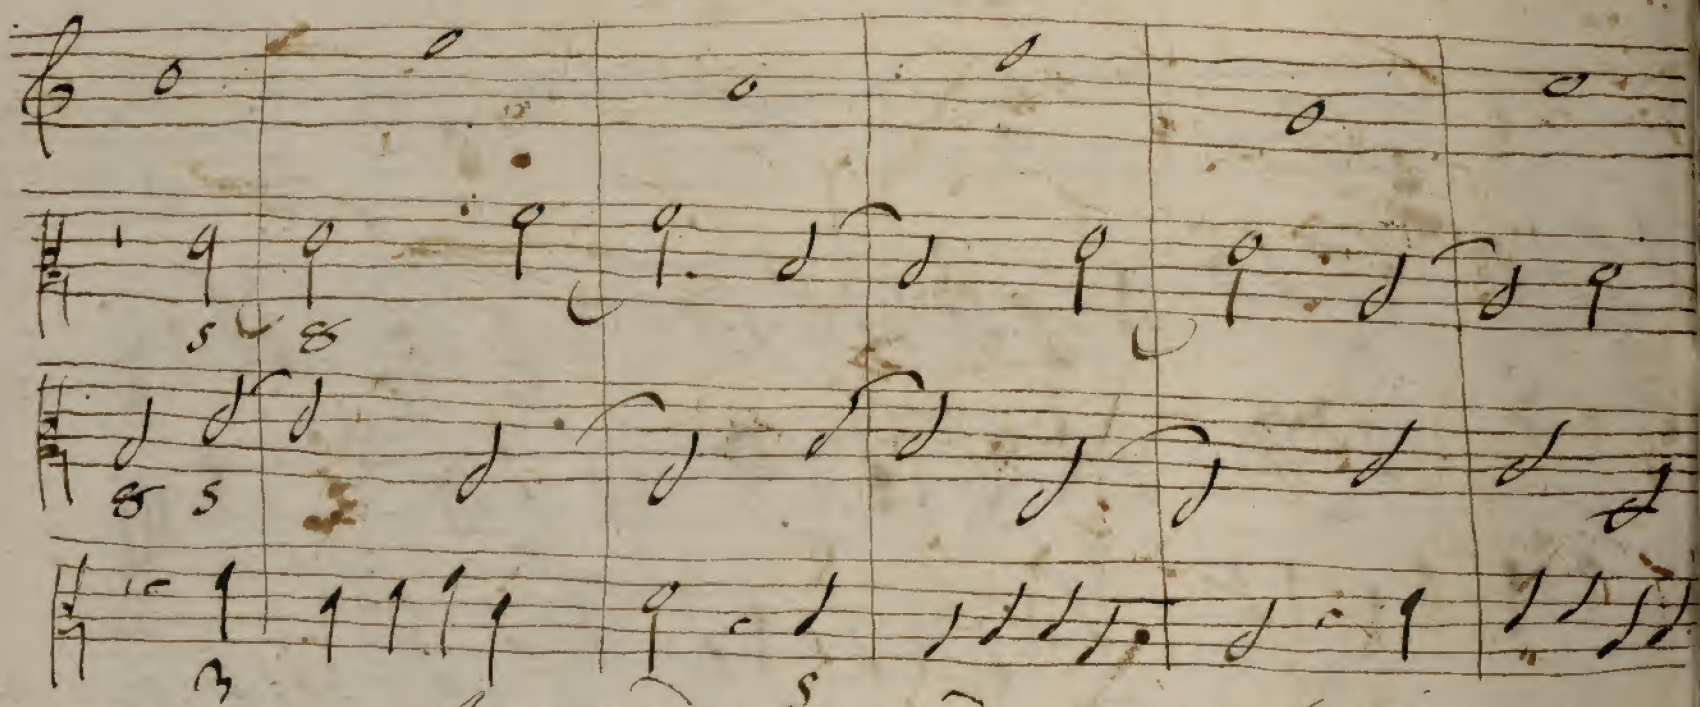 5 8
8 5
3 5